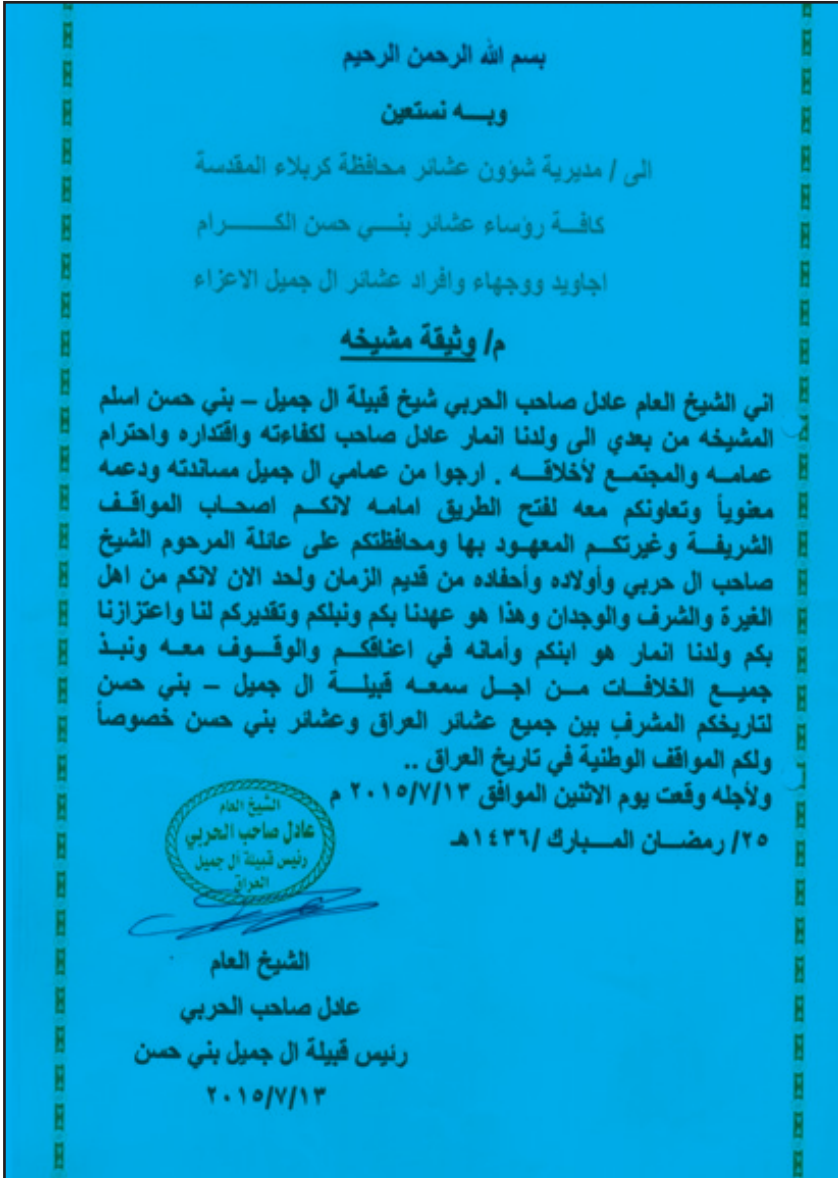 بسم الله الرحمن الرحيم
وبـــه نستعين
الى / مديرية شؤون عشائر محافظة كربلاء المقدسة
كافـــة رؤساء عشائر بنـــي حسن الكـــــرام
اجاويد ووجهاء وافراد عشائر ال جميل الاعزاء
م/ وثيقة مشيخه
اني الشيخ العام عادل صاحب الحربي شيخ قبيلة ال جميل – بني حسن اسلم
المشيخه من بعدي الى ولدنا انمار عادل صاحب لكفاءته واقتداره واحترام
عمامـــه والمجتمـــع لأخلاقـــه . ارجوا من عمامي ال جميل مساندته ودعمه
معنوياً وتعاونكم معه لفتح الطريق امامه لانكـــم اصحـــاب المواقـــف
الشريفـــة وغيرتكـــم المعهـود بها ومحافظتكم على عائلة المرحوم الشيخ
صاحب ال حربي وأولاده وأحفاده من قديم الزمان ولحد الان لانكم من اهل
الغيرة والشرف والوجدان وهذا هو عهدنا بكم ونبلكم وتقديركم لنا واعتزازنا
بكم ولدنا انمار هو ابنكم وأمانه في اعناقكـــم والوقـــوف معـــه ونبـــذ
جميـــع الخلافـــات مـــن اجـــل سمعـــه قبيلـــة ال جميل – بني حسن
لتاريخكم المشرف بين جميع عشائر العراق وعشائر بني حسن خصوصاً
ولكم المواقف الوطنية في تاريخ العراق ..
ولأجله وقعت يوم الاثنين الموافق ٢٠١٥/٧/١٣ م
٢٥/ رمضـــان المـــبارك /١٤٣٦هـ
الشيخ العام
عادل صاحب الحربي
رئيس قبيلة ال جميل
العراق
الشيخ العام
عادل صاحب الحربي
رئيس قبيلة ال جميل بني حسن
٢٠١٥/٧/١٣